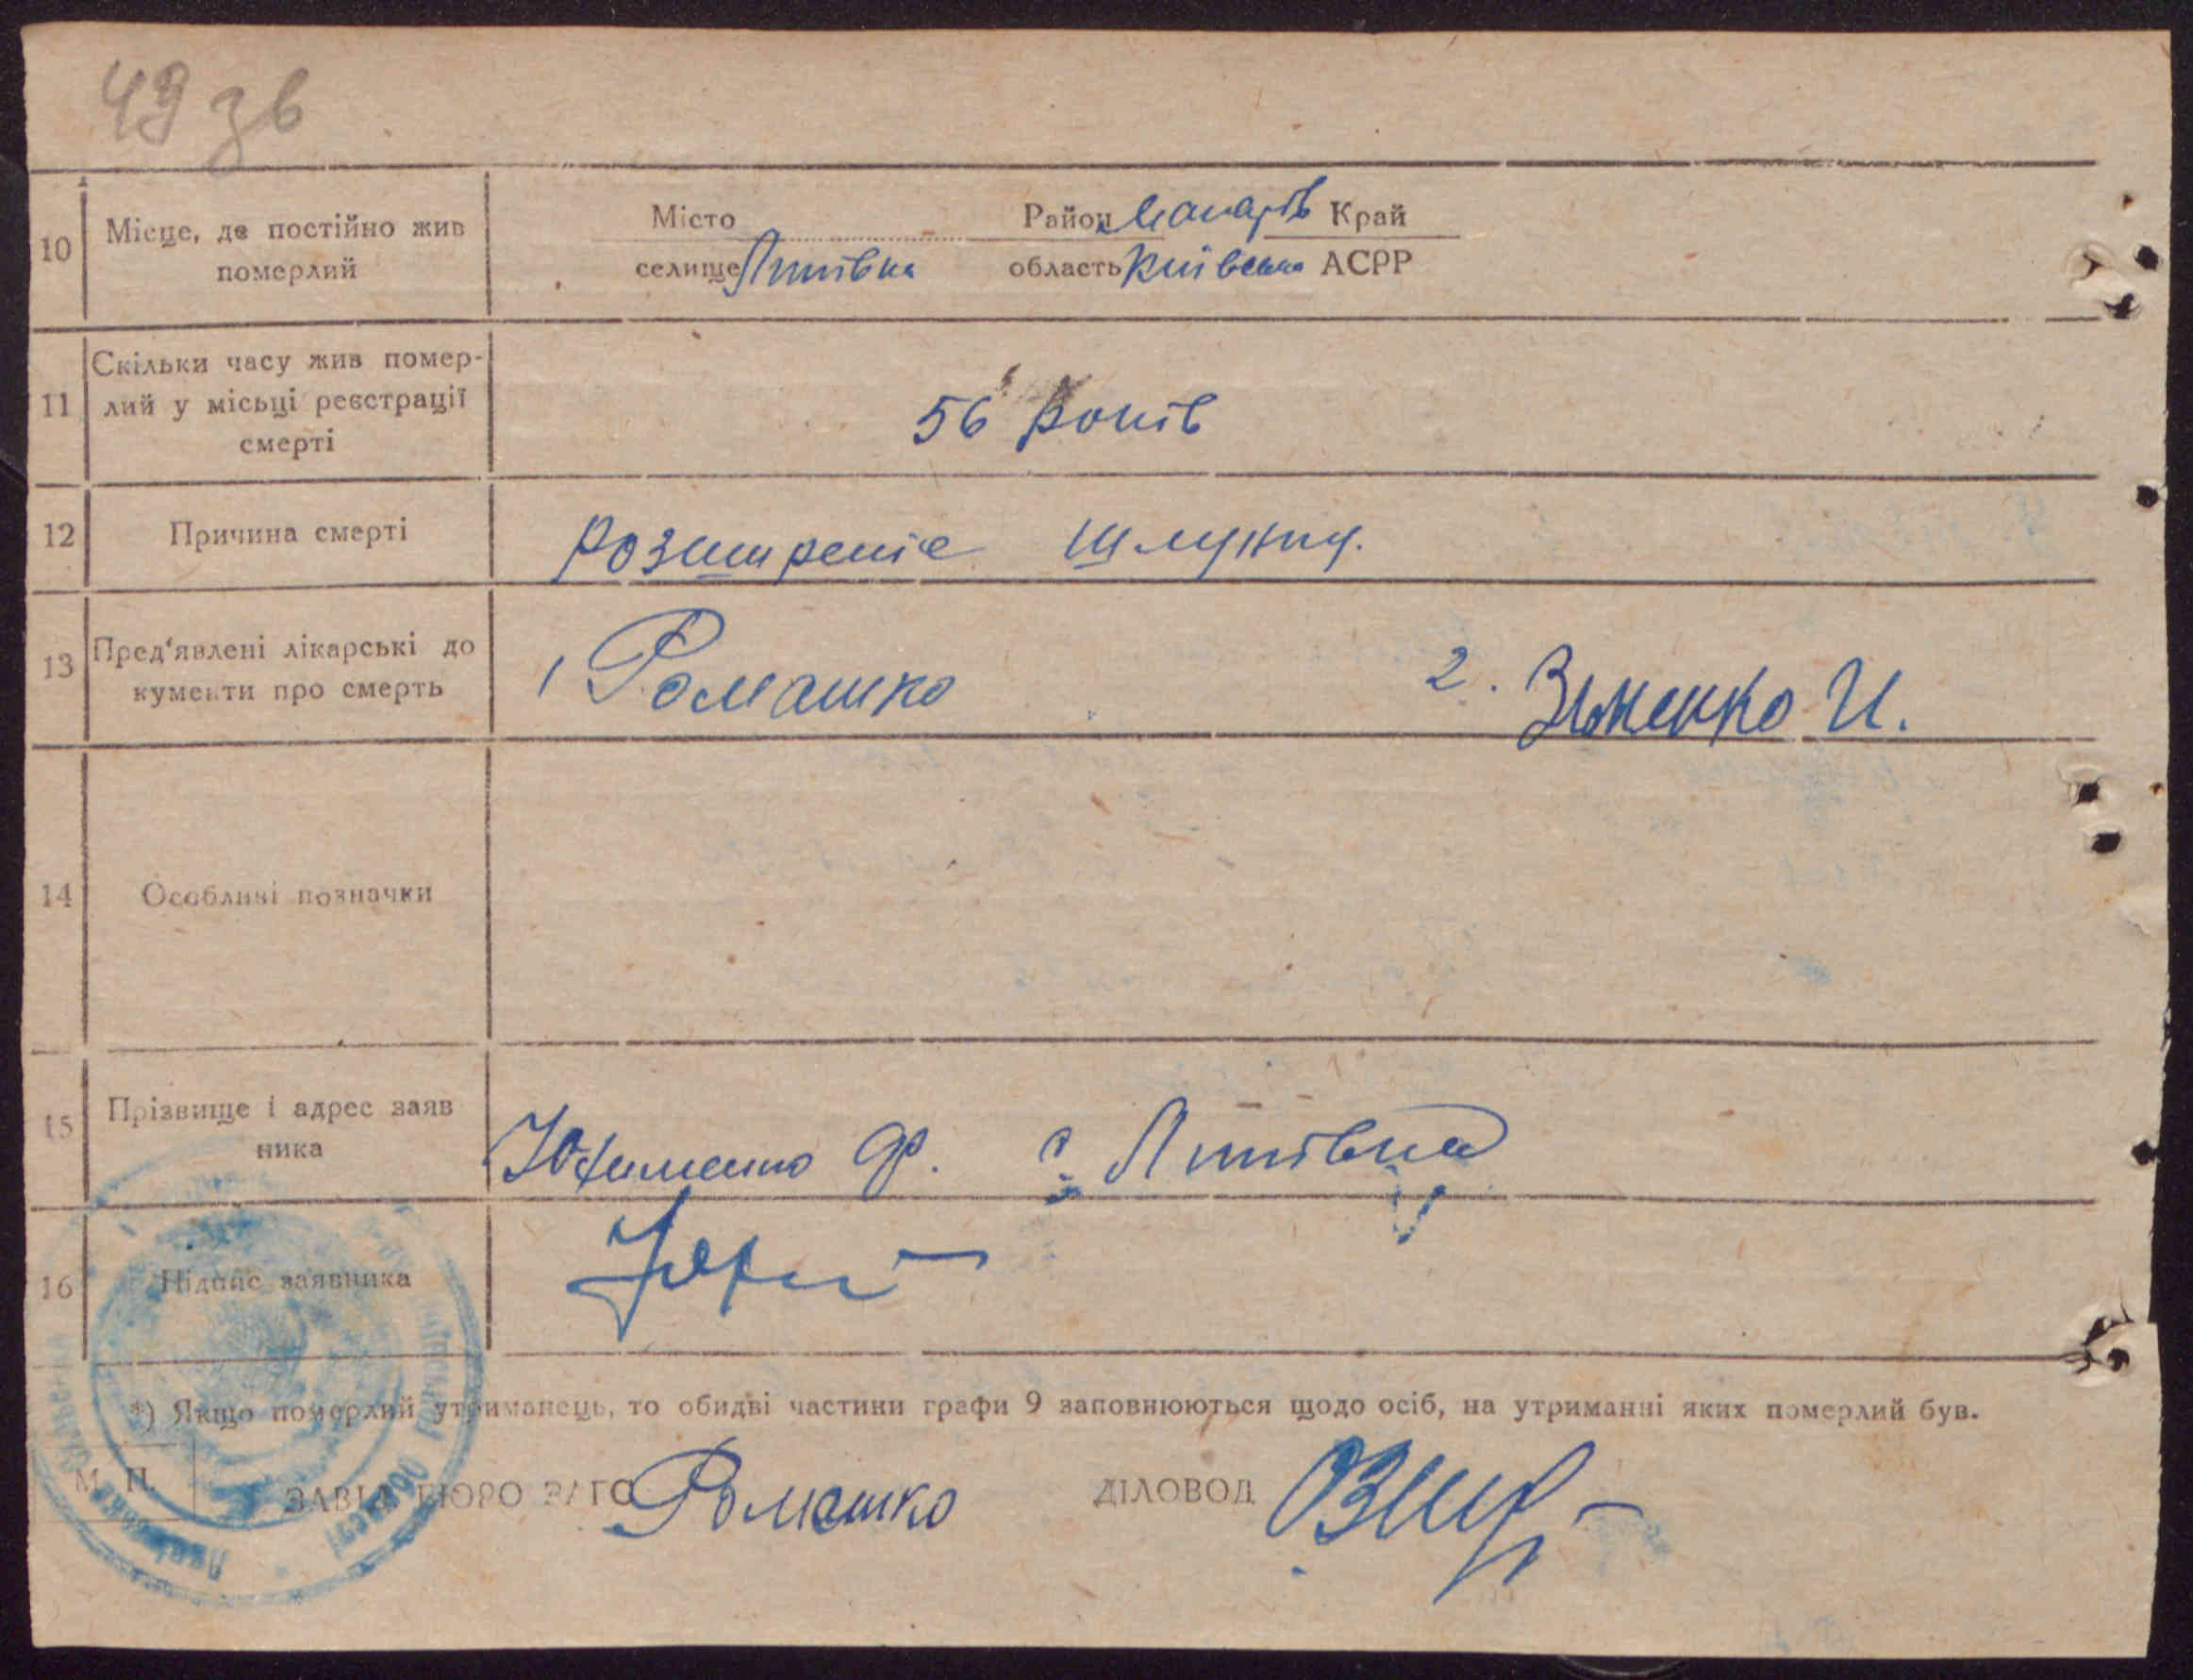 49 зв
10 Місце, де постійно жив померлий
Місто Район Макарів Край
селище Липівка область Київська АСРР
11 Скільки часу жив помер-
лий у місьці реєстрації
смерті
56 років
12 Причина смерті розширеніє шлунку.
13 Пред'явлені лікарські до
кументи про смерть
1 Ромашко 2. Зюженко И.
14 Особливі позначки
15 Прізвище і адрес заяв
ника
Юхименко Ф. с. Липівка
16 Підпис заявника
*) Якщо померлий утриманець, то обидві частини графи 9 заповнюються щодо осіб, на утриманні яких померлий був.
М. П.
ЗАВІД БЮРО ЗАГС Ромашко ДІЛОВОД